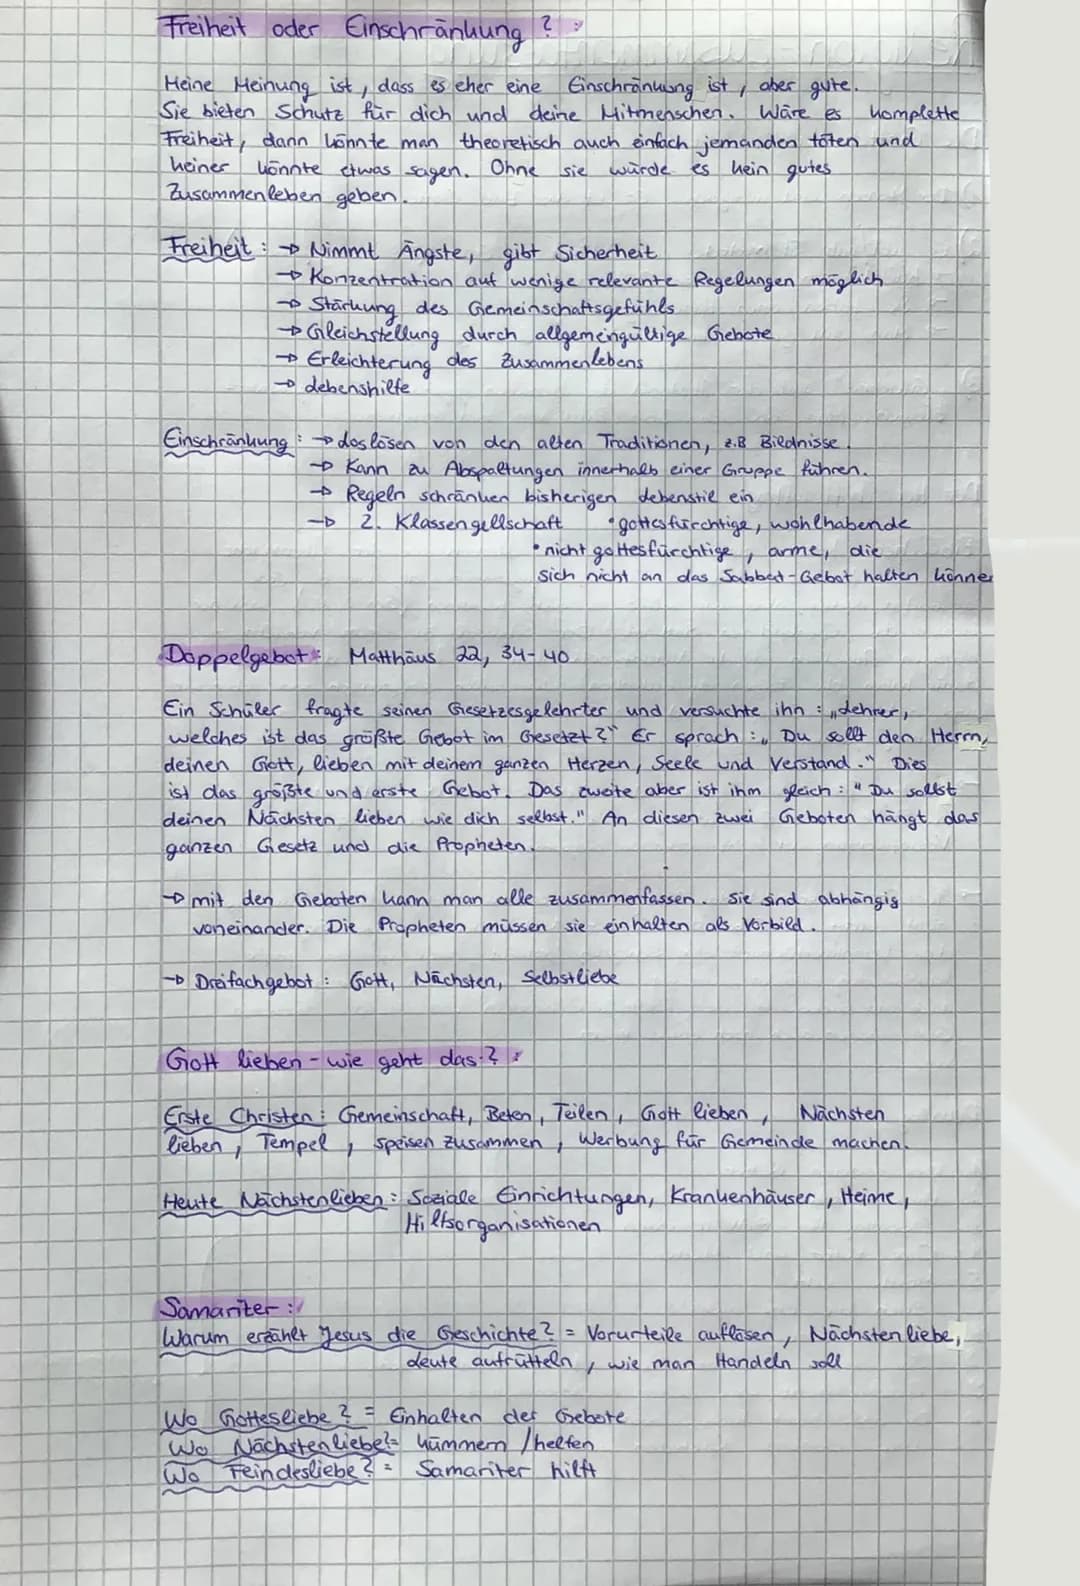 Freiheit oder Einschränkung ? :
Meine Meinung ist, dass es eher eine Einschränkung ist, aber gute.
Sie bieten Schutz für dich und deine Mitmenschen. Wäre es komplette
Freiheit, dann könnte man theoretisch auch einfach jemanden töten und
keiner könnte etwas sagen. Ohne sie würde es kein gutes
Zusammenleben geben.
Freiheit : → Nimmt Ängste, gibt Sicherheit
→ Konzentration auf wenige relevante Regelungen möglich
→ Stärkung des Gemeinschaftsgefühls
→ Gleichstellung durch allgemeingültige Gebote
→ Erleichterung des Zusammenlebens
→ Lebenshilfe
Einschränkung : → Loslösen von den alten Traditionen, z.B Bildnisse.
→ Kann zu Abspaltungen innerhalb einer Gruppe führen.
→ Regeln schränken bisherigen Lebenstil ein
→ 2. Klassengellschaft • gottesfürchtige, wohlhabende
• nicht gottesfürchtige, arme, die
sich nicht an das Sabbat-Gebot halten können
Doppelgebot: Matthäus 22, 34-40
Ein Schüler fragte seinen Gesetzesgelehrter und versuchte ihn : „Lehrer,
welches ist das größte Gebot im Gesetzt?" Er sprach : „ Du sollt den Herrn,
deinen Gott, lieben mit deinem ganzen Herzen, Seele und Verstand." Dies
ist das größte und erste Gebot. Das zweite aber ist ihm gleich : "Du sollst
deinen Nächsten lieben wie dich selbst." An diesen zwei Geboten hängt das
ganzen Gesetz und die Propheten.
→ mit den Geboten kann man alle zusammenfassen. Sie sind abhängig
voneinander. Die Propheten müssen sie einhalten als Vorbild.
→ Dreifachgebot : Gott, Nächsten, Selbstliebe
Gott lieben - wie geht das ? :
Erste Christen : Gemeinschaft, Beten, Teilen, Gott lieben, Nächsten
lieben, Tempel, speisen zusammen, Werbung für Gemeinde machen.
Heute Nächstenlieben : Soziale Einrichtungen, Krankenhäuser, Heime,
Hilfsorganisationen
Samariter :
Warum erzählt Jesus die Geschichte? = Vorurteile auflösen, Nächstenliebe,
Leute aufrütteln, wie man Handeln soll
Wo Gottesliebe ? = Einhalten der Gebote
Wo Nächstenliebe? = kümmern / helfen
Wo Feindesliebe ? = Samariter hilft